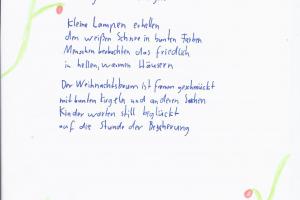 Kleine Lampen erhellen
den weißen Schnee in bunten Farben
Menschen beobachten das friedlich
in hellen, warmen Häusern
Der Weihnachtsbaum ist geschmückt
mit bunten Kugeln und anderen Sachen
Kinder warten still beglückt
auf die Stunde der Bescherung